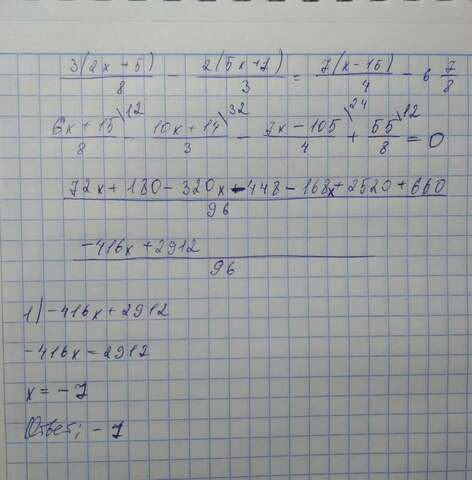 3(2x+5)/8 - 2(5x+7)/3 = 7(x-15)/4 - 6 7/8
6x+15\12/8 - 10x+14\32/3 - 7x-105\24/4 + 55\12/8 = 0
72x+180-320x-448-168x+2520+660/96
-416x+2912/96
1) -416x+2912
-416x=2912
x=-7
Ответ: -7